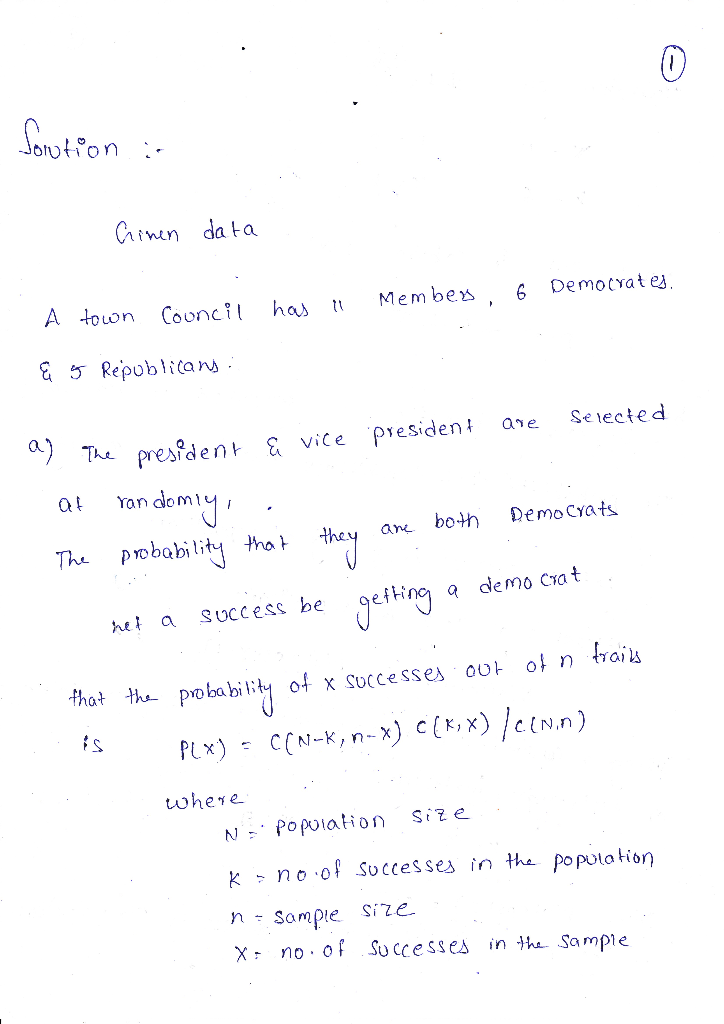 1
Solution :-
Given data
A town Council has 11 Members, 6 Democrates.
& 5 Republicans.
a) The president & vice president are selected
at randomly,
The probability that they are both Democrats
let a success be getting a democrat
that the probability of x successes out of n trails
is P(x) = C(N-K, n-x) C(K,x) / C(N,n)
where
N = population size
K = no. of successes in the population
n = sample size
X = no. of successes in the sample